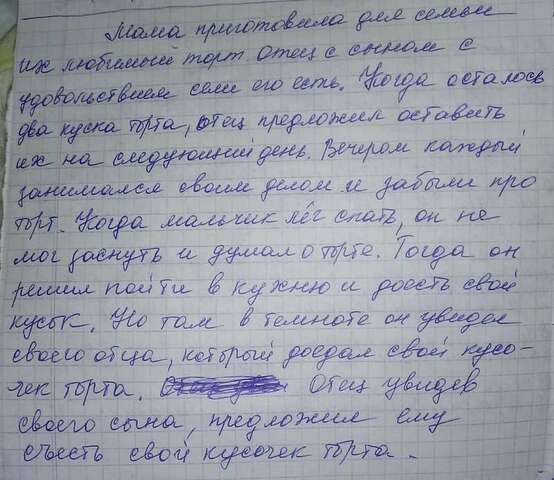 Мама приготовила для семьи
их любимый торт. Отец с сыном с
удовольствием сели его есть. Когда осталось
два куска торта, отец предложил оставить
их на следующий день. Вечером каждый
занимался своим делом и забыли про
торт. Когда мальчик лёг спать, он не
мог заснуть и думал о торте. Тогда он
решил пойти в кухню и доесть свой
кусок. Но там в темноте он увидел
своего отца, который доедал свой кусо-
чек торта. Отец увидев
своего сына, предложил ему
съесть свой кусочек торта.